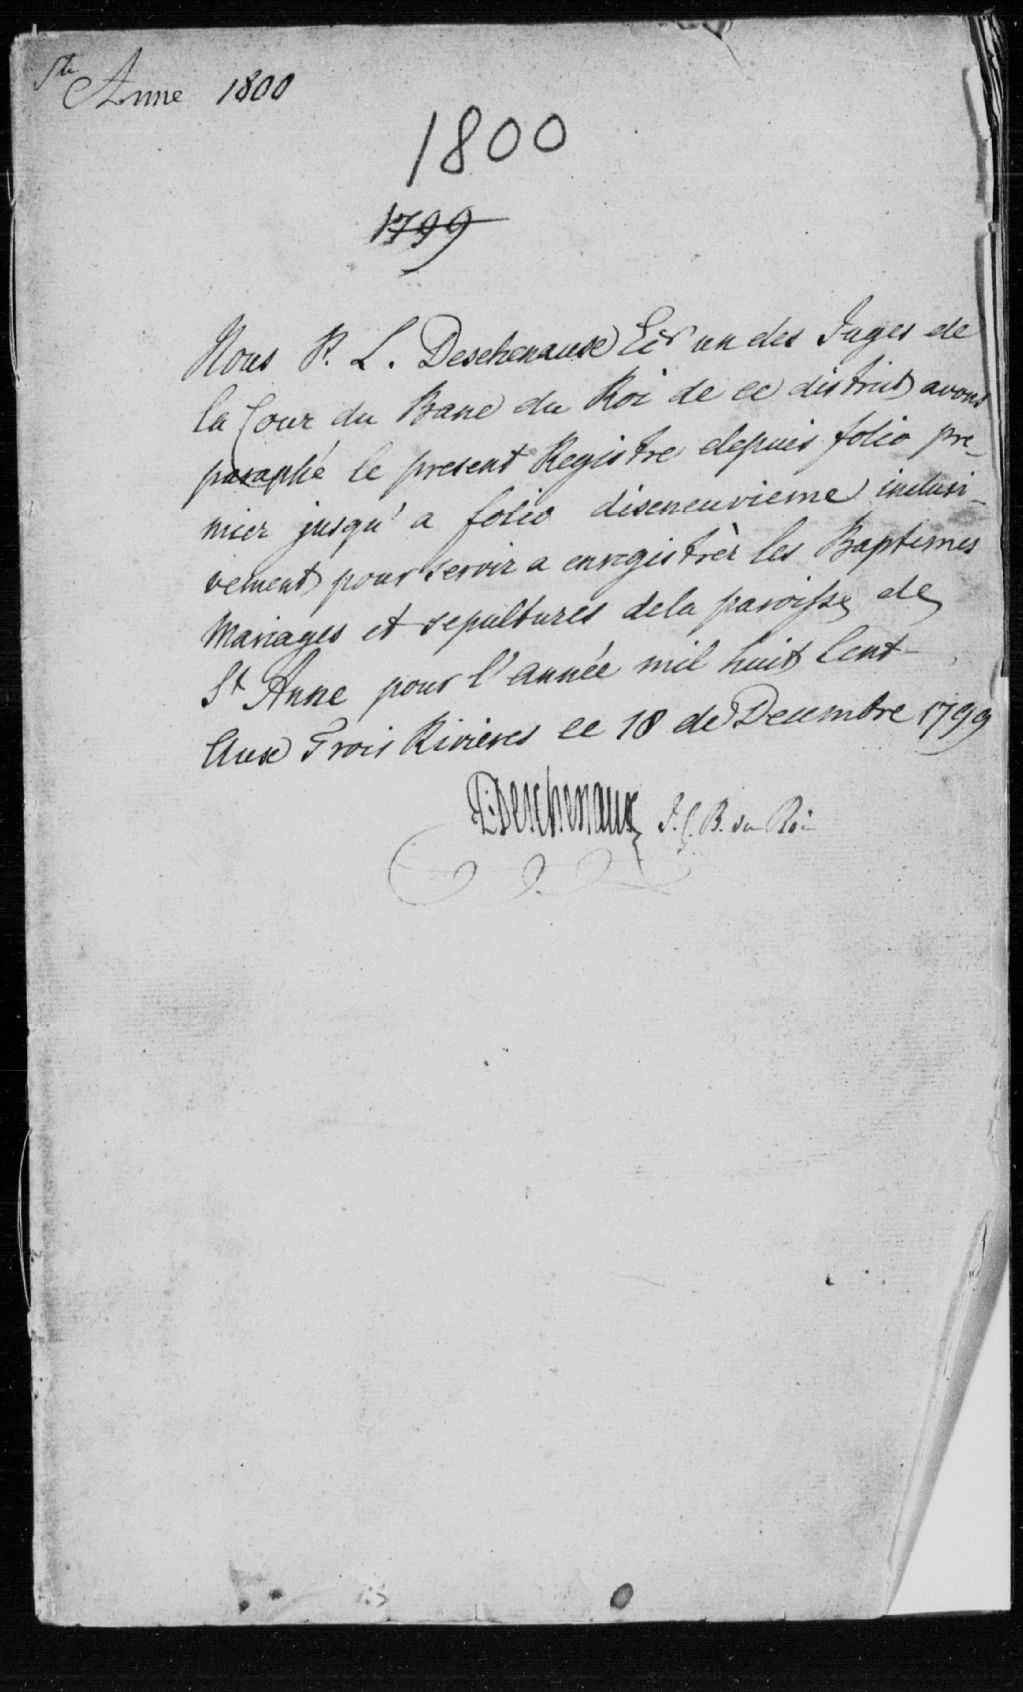 Ste Anne 1800
1800
1799
Nous P. L. Deschenaux Ecr un des Juges de
la Cour du Banc du Roi de ce district avons
paraphé le present Registre depuis folio pre-
mier jusqu'a folio diseneuvieme inclusi-
vement pour servir a enregistrèr les Baptimes
Mariages et sepultures dela paroisse de
St Anne pour l'année mil huit Cent
Aux Trois Rivieres ce 18 de Decembre 1799
Deschenaux J. C. B. du Roi